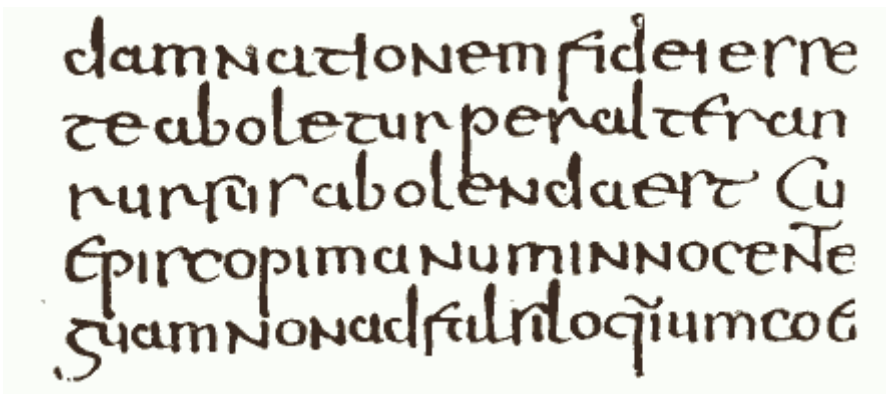 damnationem fidei esse
te aboletur per alteram
rursus abolenda est Cu
Episcopi manum innocente
guam non ad falsiloq̃ium coe